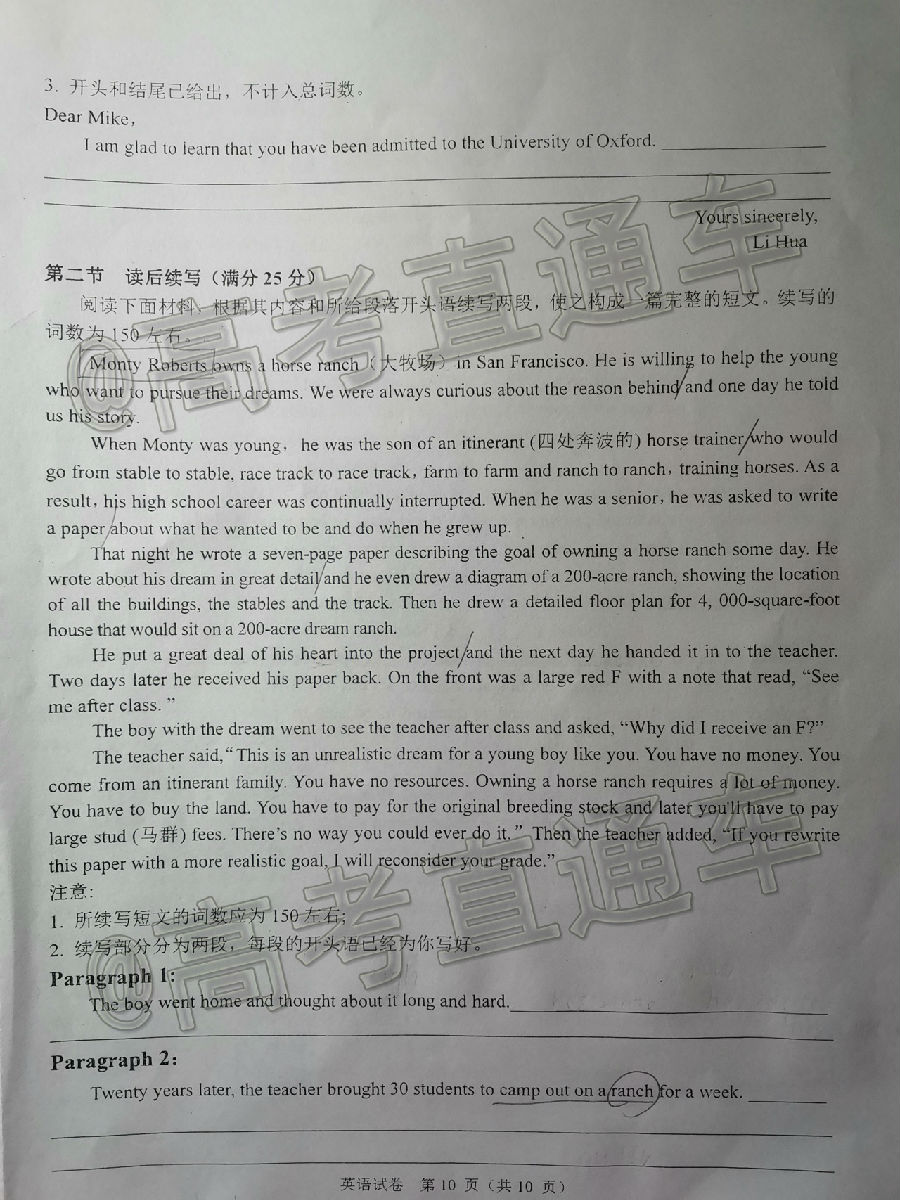 3. 开头和结尾已给出，不计入总词数。
Dear Mike,
I am glad to learn that you have been admitted to the University of Oxford.
Yours sincerely,
Li Hua
第二节 读后续写（满分 25 分）
阅读下面材料，根据其内容和所给段落开头语续写两段，使之构成一篇完整的短文。续写的
词数为 150 左右。
@高考直通车
Monty Roberts owns a horse ranch（大牧场）in San Francisco. He is willing to help the young
who want to pursue their dreams. We were always curious about the reason behind and one day he told
us his story.
When Monty was young, he was the son of an itinerant (四处奔波的) horse trainer who would
go from stable to stable, race track to race track, farm to farm and ranch to ranch, training horses. As a
result, his high school career was continually interrupted. When he was a senior, he was asked to write
a paper about what he wanted to be and do when he grew up.
That night he wrote a seven-page paper describing the goal of owning a horse ranch some day. He
wrote about his dream in great detail and he even drew a diagram of a 200-acre ranch, showing the location
of all the buildings, the stables and the track. Then he drew a detailed floor plan for 4, 000-square-foot
house that would sit on a 200-acre dream ranch.
He put a great deal of his heart into the project and the next day he handed it in to the teacher.
Two days later he received his paper back. On the front was a large red F with a note that read, “See
me after class. ”
The boy with the dream went to see the teacher after class and asked, “Why did I receive an F?”
The teacher said,“This is an unrealistic dream for a young boy like you. You have no money. You
come from an itinerant family. You have no resources. Owning a horse ranch requires a lot of money.
You have to buy the land. You have to pay for the original breeding stock and later you'll have to pay
large stud (马群) fees. There's no way you could ever do it.” Then the teacher added, “If you rewrite
this paper with a more realistic goal, I will reconsider your grade.”
@高考直通车
注意:
1. 所续写短文的词数应为 150 左右;
2. 续写部分分为两段，每段的开头语已经为你写好。
Paragraph 1:
The boy went home and thought about it long and hard.
Paragraph 2:
Twenty years later, the teacher brought 30 students to camp out on a ranch for a week.
英语试卷 第 10 页（共 10 页）